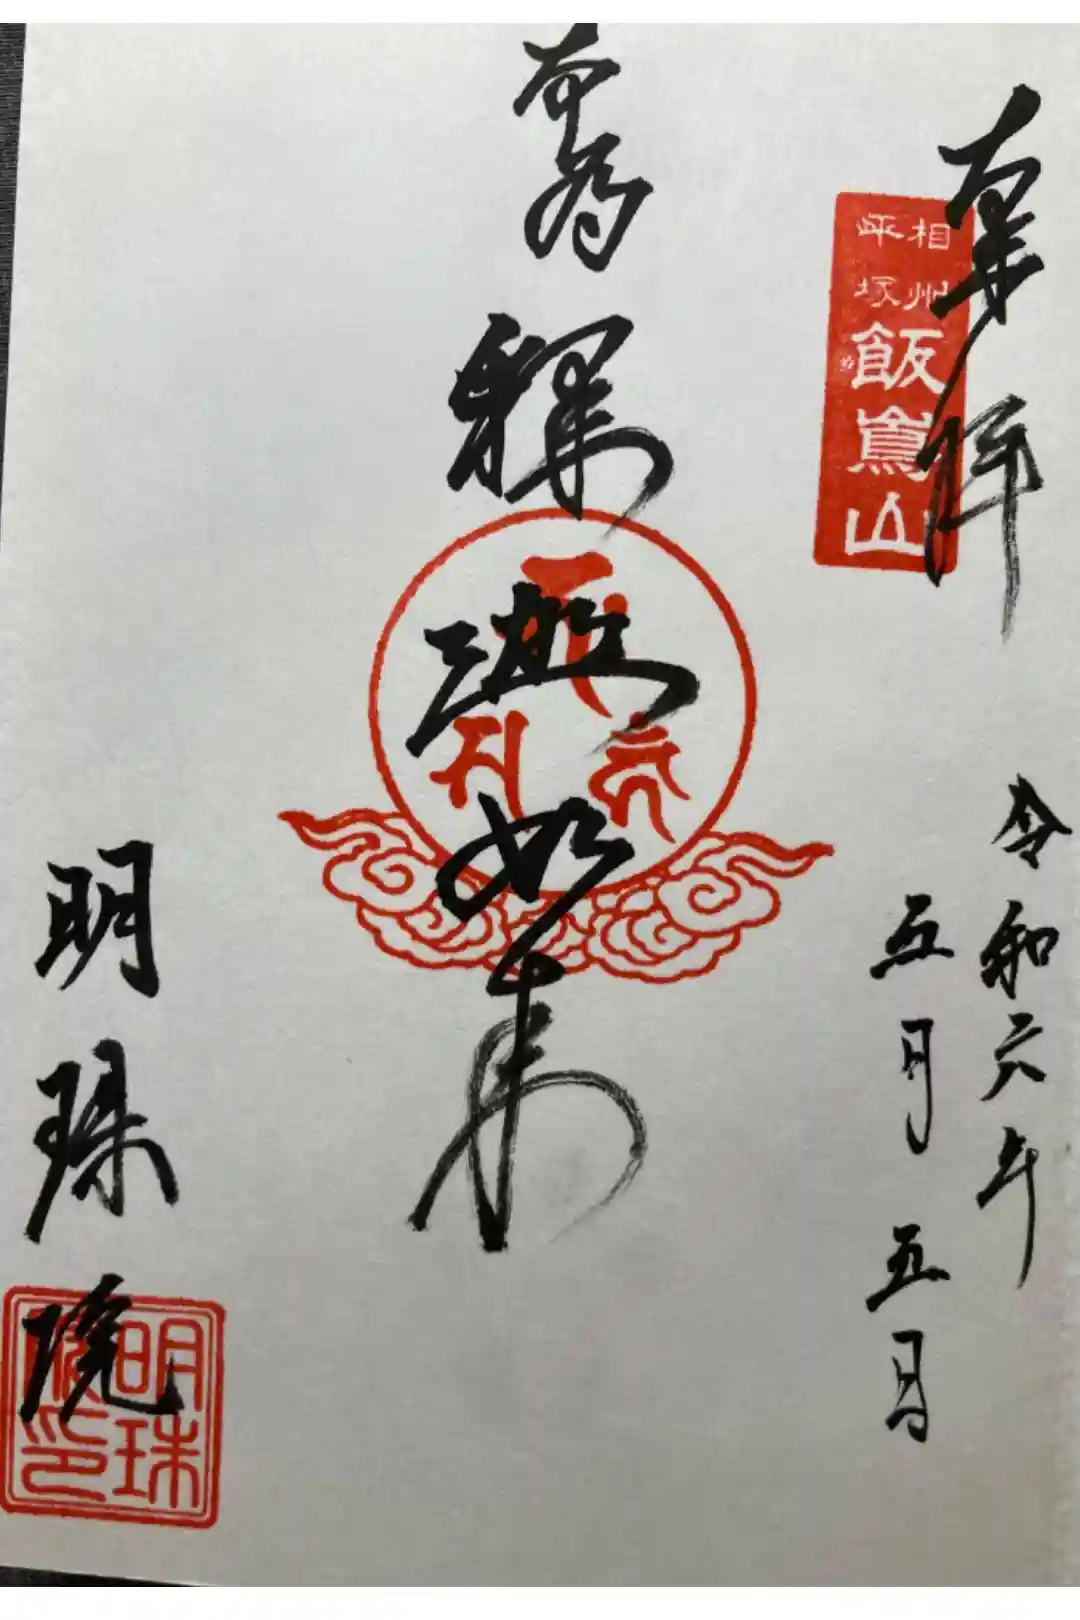 奉拝
相州
平塚
飯嶌山
令和六年
五月五日
釋迦如来
明珠院
明珠
院印